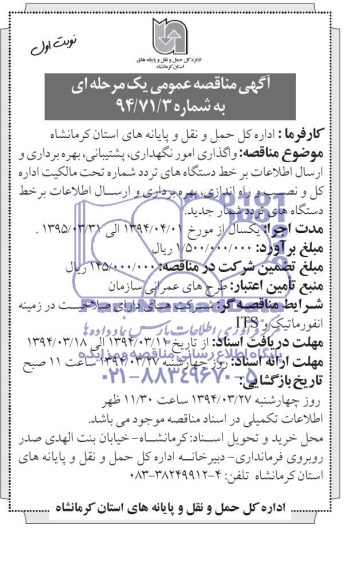 نوبت اول
اداره کل حمل و نقل و پایانه های
استان کرمانشاه
آگهی مناقصه عمومی یک مرحله ای
به شماره ۹۴/۷۱/۳
کارفرما : اداره کل حمل و نقل و پایانه های استان کرمانشاه
موضوع مناقصه: واگذاری امور نگهداری، پشتیبانی، بهره برداری و
ارسال اطلاعات بر خط دستگاه های تردد شماره تحت مالکیت اداره
کل و نصب و راه اندازی، بهره برداری و ارسال اطلاعات برخط
دستگاه های تردد شمار جدید.
مدت اجرا: یکسال از مورخ ۱۳۹۴/۰۴/۰۱ الی ۱۳۹۵/۰۳/۳۱ .
مبلغ برآورد: ۱/۵۰۰/۰۰۰/۰۰۰ ریال
مبلغ تضمین شرکت در مناقصه: ۱۴۵/۰۰۰/۰۰۰ ریال
منبع تأمین اعتبار: طرح های عمرانی سازمان
شرایط مناقصه گر: شرکت های دارای صلاحیت در زمینه
انفورماتیک و ITS
مهلت دریافت اسناد: از تاریخ ۱۳۹۴/۰۳/۱۱ الی ۱۳۹۴/۰۳/۱۸
مهلت ارائه اسناد: روز چهارشنبه ۱۳۹۴/۰۳/۲۷ ساعت ۱۱ صبح
تاریخ بازگشایی:
روز چهارشنبه ۱۳۹۴/۰۳/۲۷ ساعت ۱۱/۳۰ ظهر
اطلاعات تکمیلی در اسناد مناقصه موجود می باشد.
محل خرید و تحویل اسناد: کرمانشاه- خیابان بنت الهدی صدر
روبروی فرمانداری- دبیرخانه اداره کل حمل و نقل و پایانه های
استان کرمانشاه تلفن: ۴-۳۸۲۴۹۹۱۲-۰۸۳
اداره کل حمل و نقل و پایانه های استان کرمانشاه
ParsNamadData
فرآوری اطلاعات پارس نماد داده ها
پایگاه اطلاع رسانی مناقصه و مزایده
۰۲۱-۸۸۳۴۹۶۷۰-۵